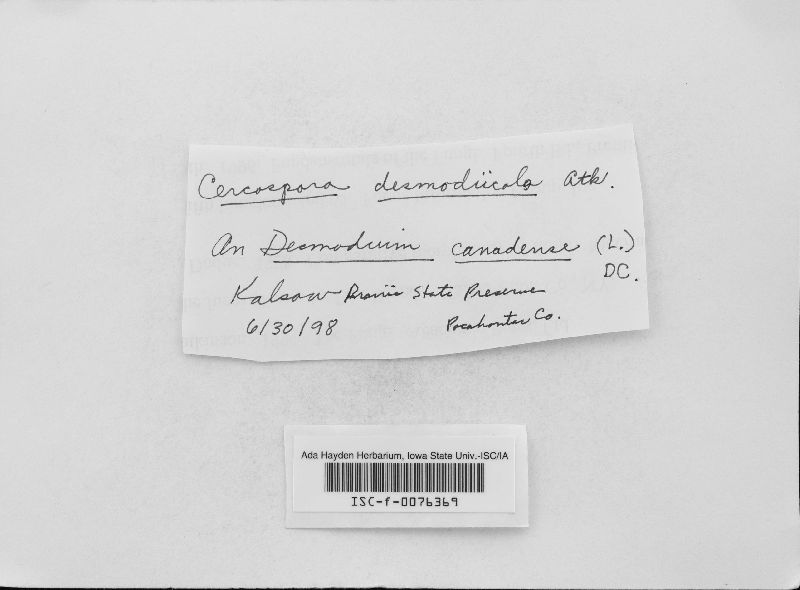 Cercospora desmodiicola Atk.
On Desmodium canadense (L.) DC.
Kalsow Prairie State Preserve
6/30/98 Pocahontas Co.
Ada Hayden Herbarium, Iowa State Univ.-ISC/IA
ISC-f-0076369